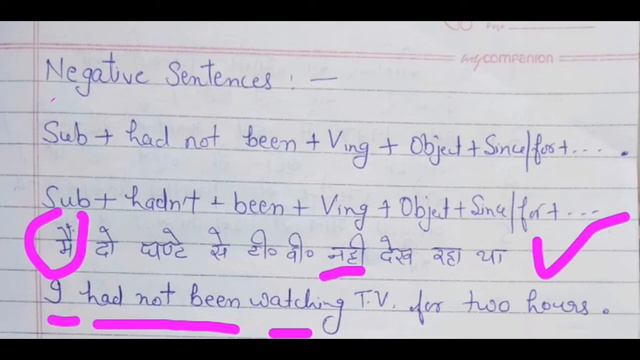 mycompanion
Negative Sentences : —
Sub + had not been + Ving + Object + Since/for + .... .
Sub + hadn't + been + Ving + Object + Since/for + ...
मैं दो घण्टे से टी० वी० नही देख रहा था
I had not been watching T.V. for two hours.